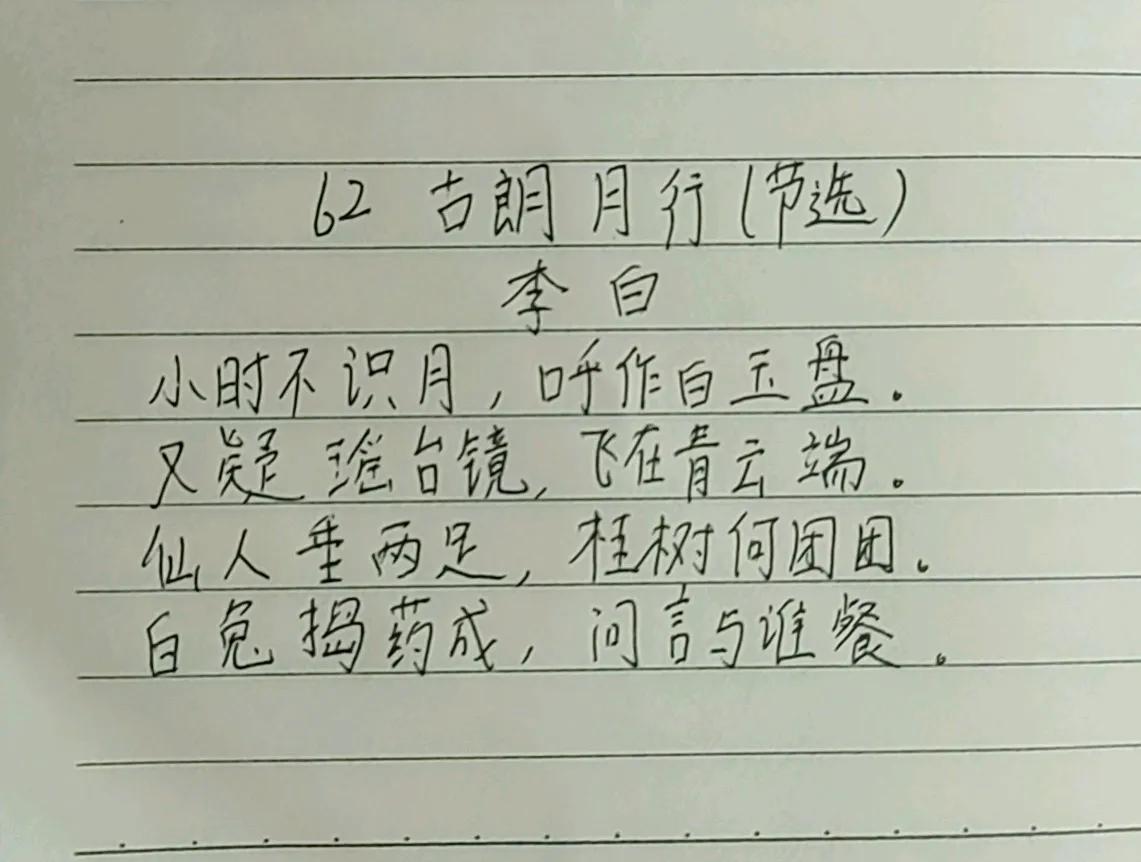 62 古朗月行(节选)
李白
小时不识月,呼作白玉盘.
又疑瑶台镜,飞在青云端。
仙人垂两足,桂树何团团。
白兔捣药成,问言与谁餐。